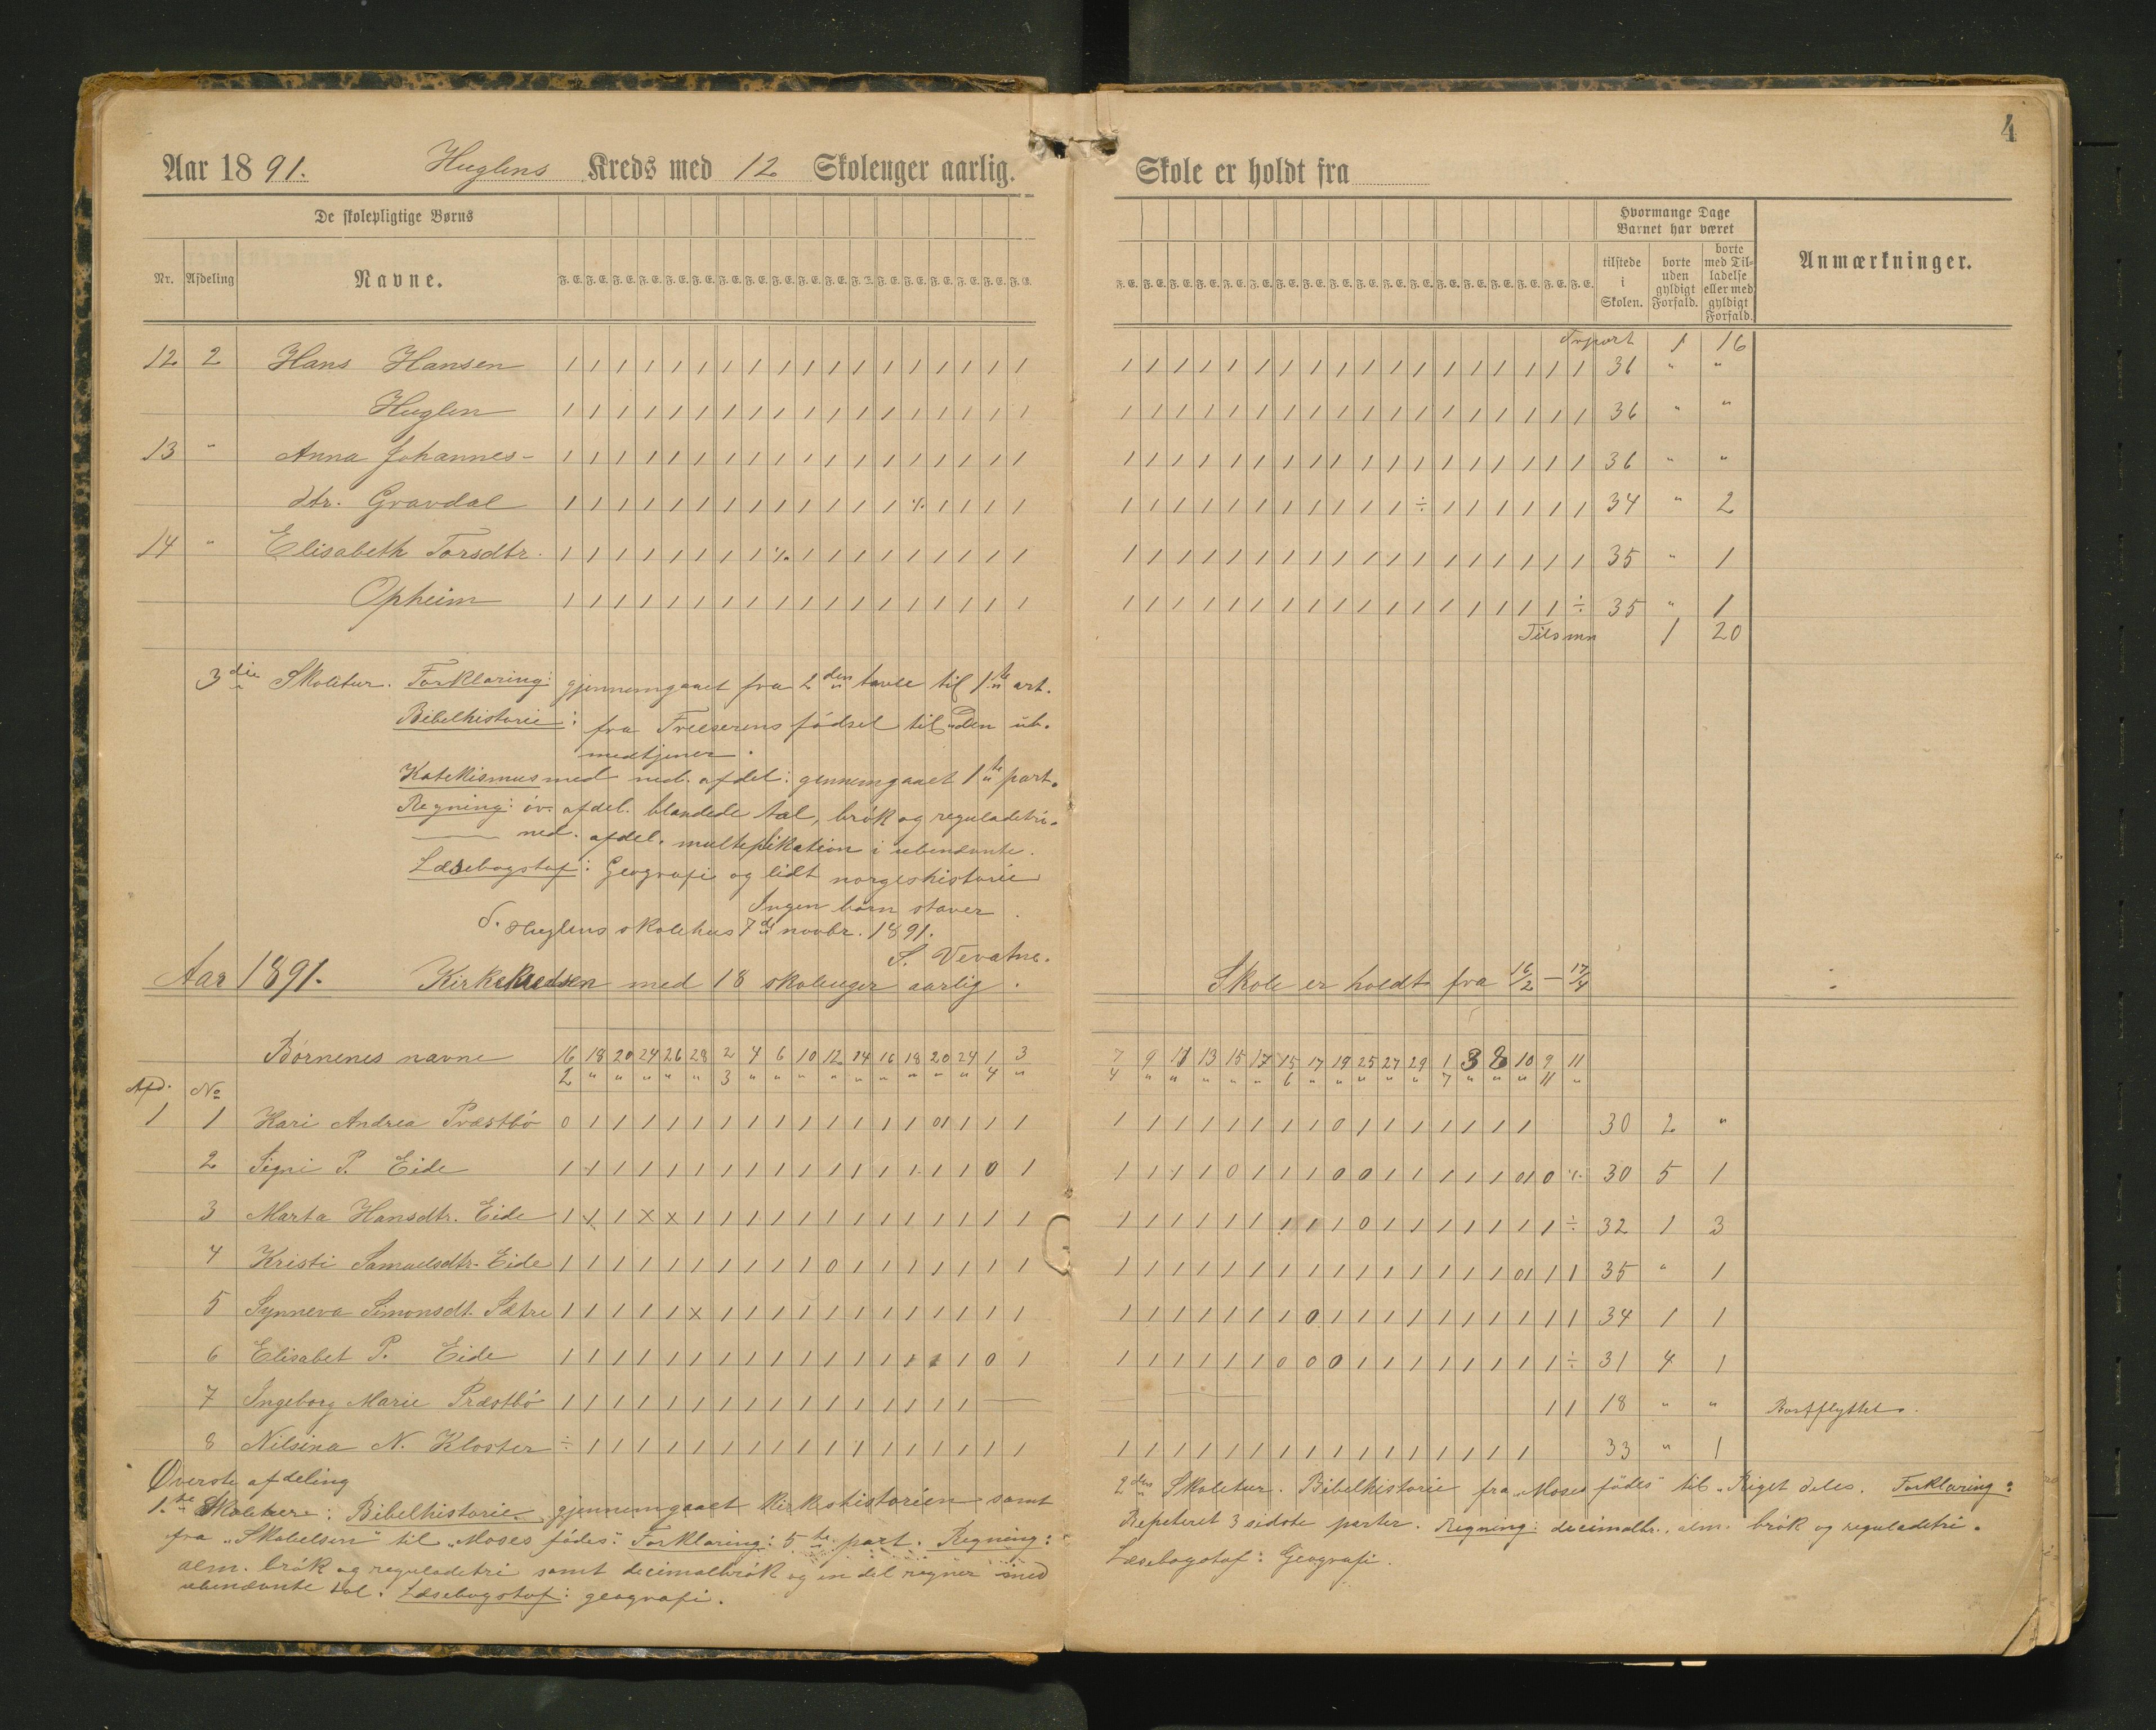 Aar 1891. Huglens Kreds med 12 Skoleuger aarlig.
De skolepligtige Børns
Nr. Afdeling Navne. F. E. F. E. F. E. F. E. F. E. F. E. F. E. F. E. F. E. F. E. F. E. F. E. F. E. F. E. F. E. F. E. F. E. F. E.
12 2 Hans Hansen 1 1 1 1 1 1 1 1 1 1 1 1 1 1 1 1 1 1
Huglen 1 1 1 1 1 1 1 1 1 1 1 1 1 1 1 1 1 1
13 " Anna Johannes- 1 1 1 1 1 1 1 1 1 1 1 1 1 1 1 1 1 1
dtr. Gravdal 1 1 1 1 1 1 1 1 1 1 1 1 1 ÷ 1 1 1 1
14 " Elisabeth Torsdtr. 1 1 1 1 1 1 1 1 ÷ 1 1 1 1 1 1 1 1 1
Opheim 1 1 1 1 1 1 1 1 1 1 1 1 1 1 1 1 1 1
3die Skoletur. Forklaring: gjennemgaaet fra 2den tavle til 1ste art.
Bibelhistorie: fra Frelserens fødsel til "Den ub.
medtjener.
Katekismus med ned. afdel: gennemgaaet 1ste part.
Regning: øv. afdel. blandede tal, brøk og reguladetri.
— ned. afdel. multiplikation i ubenævnte.
Læsebogstof: Geografi og lidt norgeshistorie
Ingen børn staver.
S. Huglens skolehus 7de novbr. 1891.
S. Vevatne.
Aar 1891. Kirkekredsen med 18 skoleuger aarlig.
Børnenes navne 16 18 20 24 26 28 2 4 6 10 12 14 16 18 20 24 1 3
2 " " " " " 3 " " " " " " " " " 4 "
Afd. No
1 1 Kari Andrea Præstbø 0 1 1 1 1 1 1 1 1 1 1 1 1 1 01 1 1 1
2 Signi P. Eide 1 1 1 1 1 1 1 1 1 1 1 1 1 1 1 1 0 1
3 Marta Hansdtr. Eide 1 1 1 x x 1 1 1 1 1 1 1 1 1 1 1 1 1
4 Kristi Samuelsdtr. Eide 1 1 1 1 1 1 1 1 1 1 0 1 1 1 1 1 1 1
5 Synneva Simonsdt. Sætre 1 1 1 1 1 x 1 1 1 1 1 1 1 1 1 1 1 1
6 Elisabet P. Eide 1 1 1 1 1 1 1 1 1 1 1 1 1 1 1 1 0 1
7 Ingeborg Marie Præstbø 1 1 1 1 1 1 1 1 1 1 1 1 1 1 1 1 —
8 Nilsina N. Kloster ÷ 1 1 1 1 1 1 1 1 1 1 1 1 1 1 1 1 1
Øverste afdeling
1.ste Skoletur: Bibelhistorie gjennemgaaet kirkehistorien samt
fra „Skabelsen" til „Moses fødes". Forklaring: 5te part. Regning:
alm. brøk og reguladetri samt decimalbrøk og en del regner med
ubenævnte tal. Læsebogstof: geografi.
4
Skole er holdt fra
Hvormange Dage Barnet har været
F. E. F. E. F. E. F. E. F. E. F. E. F. E. F. E. F. E. F. E. F. E. F. E. F. E. F. E. F. E. F. E. F. E. F. E. tilstede i Skolen. borte uden gyldigt Forfald. borte med Tilladelse eller med gyldigt Forfald. Anmærkninger.
Trsport 1 16
1 1 1 1 1 1 1 1 1 1 1 1 1 1 1 1 1 1 36 " "
1 1 1 1 1 1 1 1 1 1 1 1 1 1 1 1 1 1 36 " "
1 1 1 1 1 1 1 1 1 1 1 1 1 1 1 1 1 1 36 " "
1 1 1 1 1 1 1 1 1 1 1 ÷ 1 1 1 1 1 1 34 " 2
1 1 1 1 1 1 1 1 1 1 1 1 1 1 1 1 1 1 35 " 1
1 1 1 1 1 1 1 1 1 1 1 1 1 1 1 1 1 ÷ 35 " 1
Tilsmn 1 20
Skole er holdt fra 16/2 — 17/4
7 9 11 13 15 17 15 17 19 25 27 29 1 3 8 10 9 11
4 " " " " " 6 " " " " " 7 " " " 11 "
1 1 1 1 1 1 1 1 0 1 1 1 1 1 1 1 30 2 "
1 1 1 1 0 1 1 1 0 0 1 1 1 1 1 01 0 ÷ 30 5 1
1 1 1 1 1 1 1 1 1 0 1 1 1 1 1 1 1 ÷ 32 1 3
1 1 1 1 1 1 1 1 1 1 1 1 1 1 1 01 1 1 35 " 1
1 1 1 1 1 1 1 0 1 1 1 1 1 1 1 1 1 1 34 1 1
1 1 1 1 1 1 0 0 0 1 1 1 1 1 1 1 1 ÷ 31 4 1
— 1 1 18 " " Bortflyttet.
1 1 1 1 1 1 1 1 1 1 1 1 1 1 1 1 33 " 1
2den Skoletur. Bibelhistorie fra „Moses fødes" til „Riget deles. Forklaring:
Repeteret 3 sidste parter. Regning: decimalbr., alm. brøk og reguladetri.
Læsebogstof: Geografi.